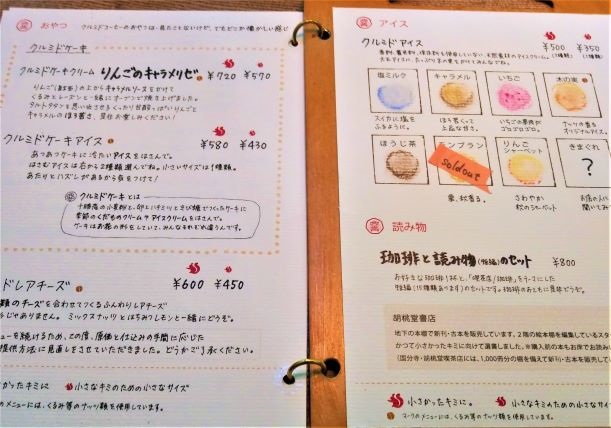 おやつ
クルミドコーヒーのおやつは…見たことないけど、でもどこか懐かしい感じ
クルミドケーキ
クルミドケーキクリーム りんごのキャラメリゼ ¥720 ¥570
りんご(紅玉)の上からキャラメルソースをかけて
くるみとレーズンと一緒にオーブンで焼き上げました。
タルトタタンを思い出させるくったり甘酸っぱいりんごと
キャラメルのほろ苦さ、是非お愉しみください!
クルミドケーキアイス ¥580 ¥430
あつあつケーキに冷たいアイスをはさんで。
はさむアイスは右から2種類選んでね。小さいサイズは1種類。
あたりとハズレがあるから気をつけて!
クルミドケーキとは
十勝産の小麦粉と、卵とハチミツときび糖でつくったケーキに
季節のくだものクリームやアイスクリームをはさんで。
ケーキはお花の形をしていて、みんなそれぞれ違うんです。
ドレアチーズ ¥600 ¥450
類のチーズを合わせてつくるふんわりレアチーズ
じゃありません。ミックスナッツとはちみつレモンと一緒にどうぞ。
ューを続けるため、この度、原価と仕込みの手間に応じた
提供方法に見直しをさせていただきました。どうかご了承ください。
かったキミに 小さなキミのための小さなサイズ
のメニューには、くるみ等のナッツ類を使用しています。
アイス
クルミドアイス ¥500 ¥350
(2種類) (1種類)
塩ミルク キャラメル いちご 木の実
スイカに塩を
ふるように。
ほろ苦くって
上品な甘さ。
いちごの果肉が
ゴロゴロゴロ。
ナッツの香る
オリジナルアイス。
ほうじ茶 モンブラン りんごシャーベット きまぐれ
soldout
?
栗、林香る。
さわやか
秋のシャーベット
読み物
珈琲と読み物(短編)のセット ¥800
お好きな珈琲1杯と、「喫茶店/珈琲」をテーマにした
短編(15種類あります)のセットです。珈琲のおともに是非どうぞ。
胡桃堂書店
地下の本棚で新刊・古本を販売しています。2階の絵本棚を編集しているスタ
かつて小さかったキミに向けて選書しました。※購入前の本もお席でお読みい
(国分寺・胡桃堂喫茶店には、1,000冊分の棚を備えて新刊・古本を販売して
小さかったキミに。 小さなキミのための小さなサ
マークのメニューには、くるみ等のナッツ類を使用しています。